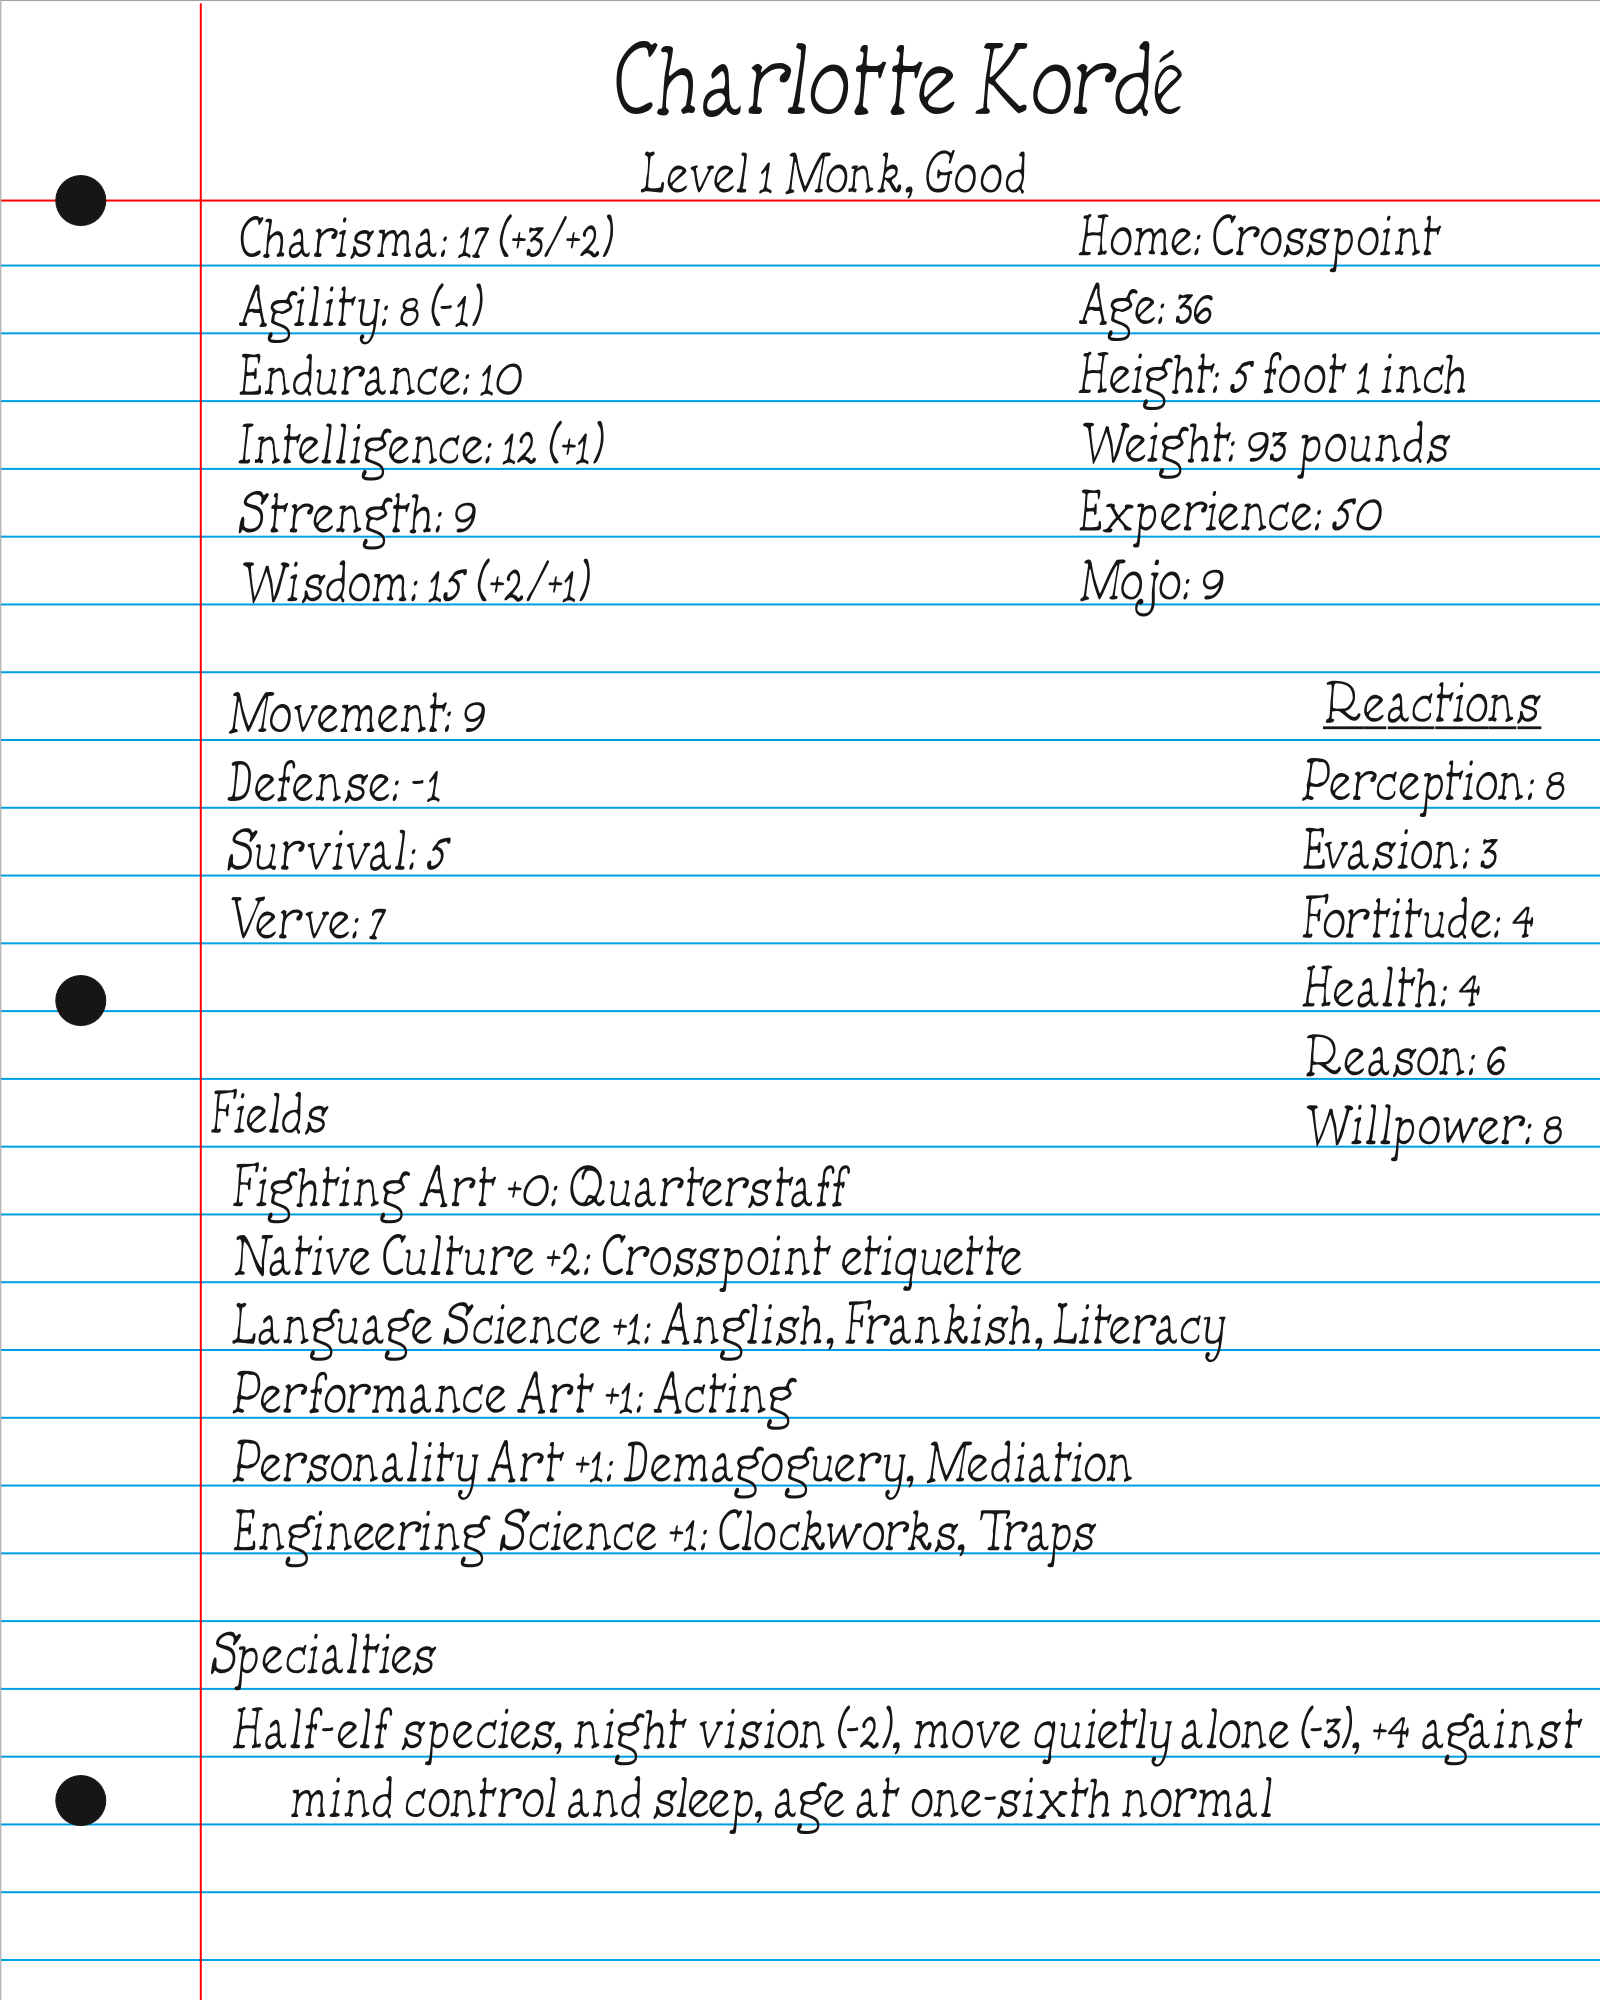 Charlotte Kordé
Level 1 Monk, Good
Charisma: 17 (+3/+2)
Agility: 8 (-1)
Endurance: 10
Intelligence: 12 (+1)
Strength: 9
Wisdom: 15 (+2/+1)
Home: Crosspoint
Age: 36
Height: 5 foot 1 inch
Weight: 93 pounds
Experience: 50
Mojo: 9
Movement: 9
Defense: -1
Survival: 5
Verve: 7
Reactions
Perception: 8
Evasion: 3
Fortitude: 4
Health: 4
Reason: 6
Willpower: 8
Fields
Fighting Art +0: Quarterstaff
Native Culture +2: Crosspoint etiquette
Language Science +1: Anglish, Frankish, Literacy
Performance Art +1: Acting
Personality Art +1: Demagoguery, Mediation
Engineering Science +1: Clockworks, Traps
Specialties
Half-elf species, night vision (-2), move quietly alone (-3), +4 against
mind control and sleep, age at one-sixth normal